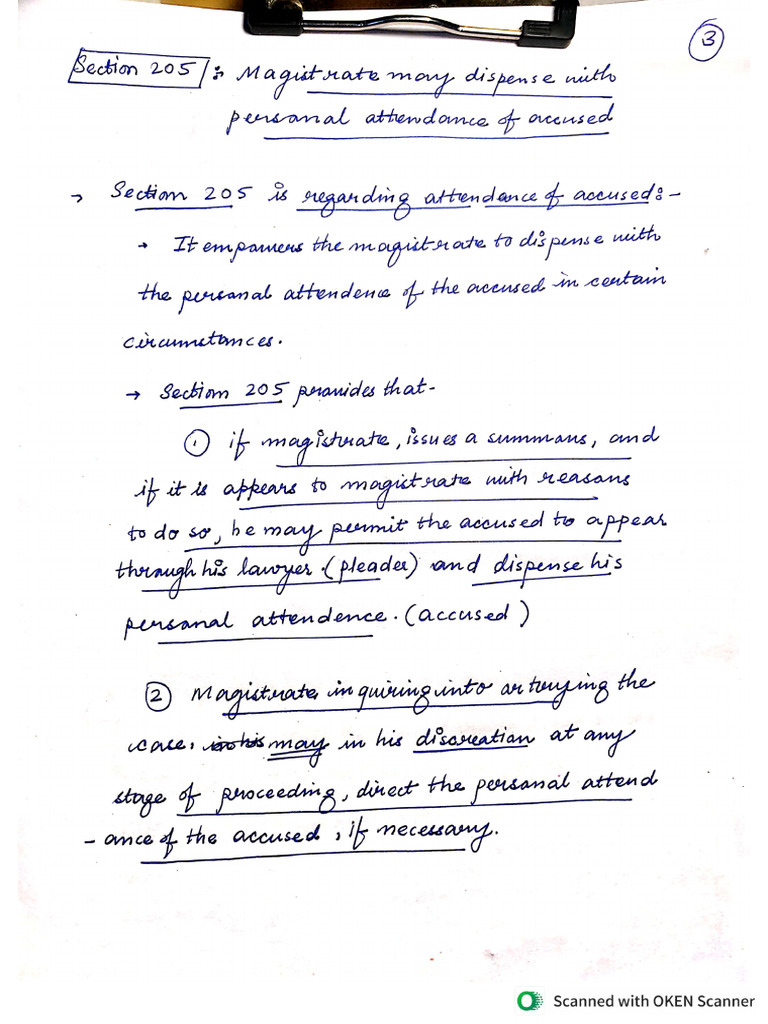 3
Section 205 : Magistrate may dispense with
personal attendance of accused
→ Section 205 is regarding attendance of accused:-
→ It empowers the magistrate to dispense with
the personal attendence of the accused in certain
circumstances.
→ Section 205 provides that -
① if magistrate, issues a summons, and
if it is appears to magistrate with reasons
to do so, he may permit the accused to appear
through his lawyer. (pleader) and dispense his
personal attendence. (accused)
② Magistrate inquiring into or trying the
case, may in his discreation at any
stage of proceeding, direct the personal attend
- ance of the accused, if necessary.
Scanned with OKEN Scanner